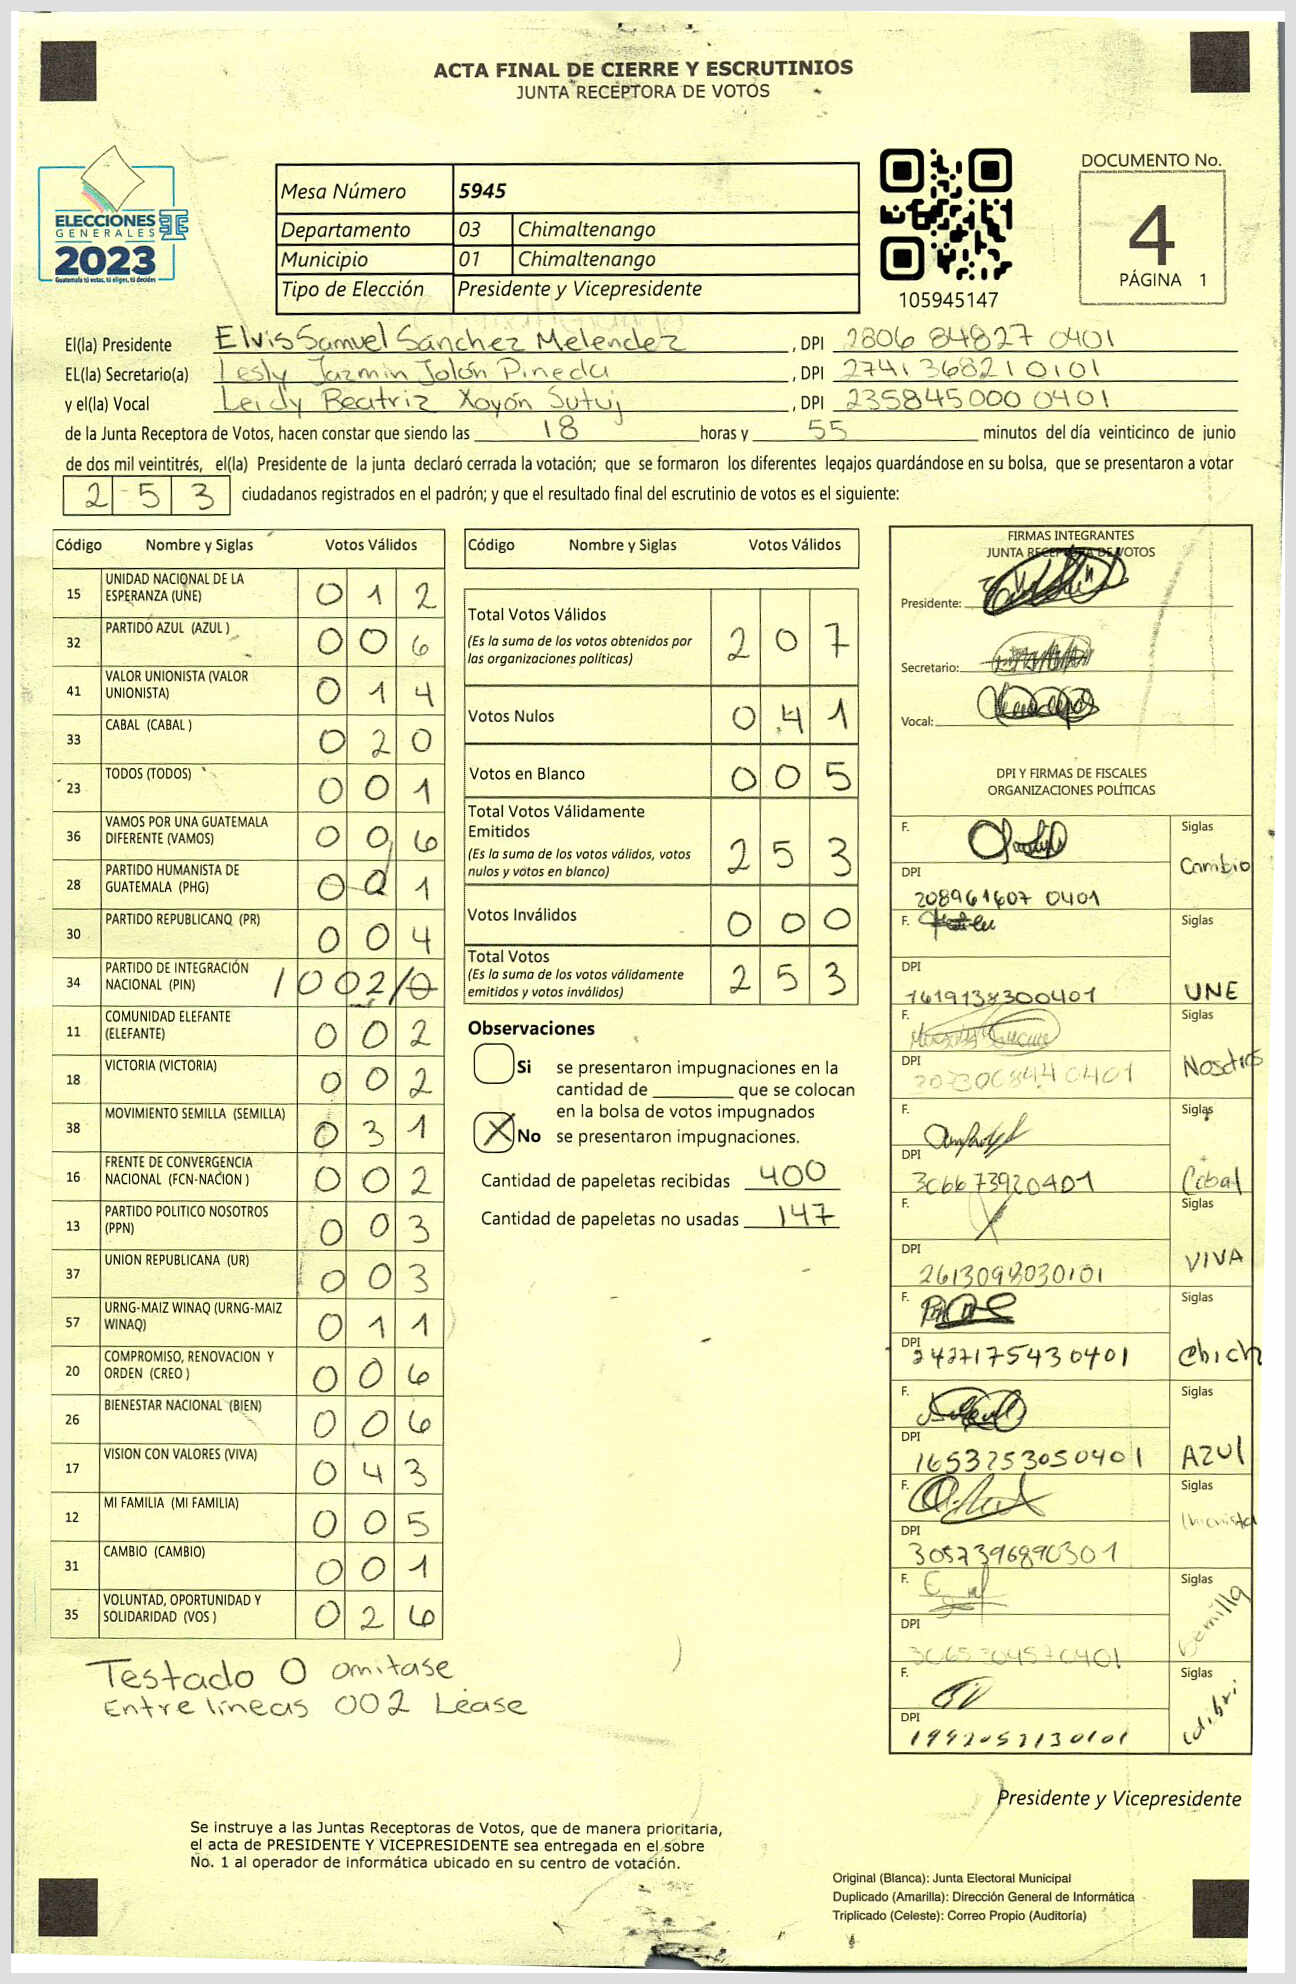 ACTA FINAL DE CIERRE Y ESCRUTINIOS
JUNTA RECEPTORA DE VOTOS
ELECCIONES
GENERALES
2023
Guatemala tú votas, tú eliges, tú decides
Mesa Número 5945
Departamento 03 Chimaltenango
Municipio 01 Chimaltenango
Tipo de Elección Presidente y Vicepresidente
105945147
DOCUMENTO No.
4
PÁGINA 1
El(la) Presidente Elvis Samuel Sánchez Melendez, DPI 2806 84827 0401
EL(la) Secretario(a) Lesly Jazmin Jolón Pineda, DPI 2741368210101
y el(la) Vocal Leidy Beatriz Xoyón Sutuj, DPI 235845000 0401
de la Junta Receptora de Votos, hacen constar que siendo las 18 horas y 55 minutos del día veinticinco de junio
de dos mil veintitrés, el(la) Presidente de la junta declaró cerrada la votación; que se formaron los diferentes legajos guardándose en su bolsa, que se presentaron a votar
253 ciudadanos registrados en el padrón; y que el resultado final del escrutinio de votos es el siguiente:
Código Nombre y Siglas Votos Válidos
15 UNIDAD NACIONAL DE LA ESPERANZA (UNE) 012
32 PARTIDO AZUL (AZUL ) 006
41 VALOR UNIONISTA (VALOR UNIONISTA) 014
33 CABAL (CABAL ) 020
23 TODOS (TODOS) 001
36 VAMOS POR UNA GUATEMALA DIFERENTE (VAMOS) 006
28 PARTIDO HUMANISTA DE GUATEMALA (PHG) 001
30 PARTIDO REPUBLICANO (PR) 004
34 PARTIDO DE INTEGRACIÓN NACIONAL (PIN) /002/0
11 COMUNIDAD ELEFANTE (ELEFANTE) 002
18 VICTORIA (VICTORIA) 002
38 MOVIMIENTO SEMILLA (SEMILLA) 031
16 FRENTE DE CONVERGENCIA NACIONAL (FCN-NACION ) 002
13 PARTIDO POLITICO NOSOTROS (PPN) 003
37 UNION REPUBLICANA (UR) 003
57 URNG-MAIZ WINAQ (URNG-MAIZ WINAQ) 011
20 COMPROMISO, RENOVACION Y ORDEN (CREO ) 006
26 BIENESTAR NACIONAL (BIEN) 006
17 VISION CON VALORES (VIVA) 043
12 MI FAMILIA (MI FAMILIA) 005
31 CAMBIO (CAMBIO) 001
35 VOLUNTAD, OPORTUNIDAD Y SOLIDARIDAD (VOS ) 026
Testado 0 omitase
Entre líneas 002 Léase
Código Nombre y Siglas Votos Válidos
Total Votos Válidos 207
(Es la suma de los votos obtenidos por
las organizaciones políticas)
Votos Nulos 041
Votos en Blanco 005
Total Votos Válidamente
Emitidos 253
(Es la suma de los votos válidos, votos
nulos y votos en blanco)
Votos Inválidos 000
Total Votos 253
(Es la suma de los votos válidamente
emitidos y votos inválidos)
Observaciones
Si se presentaron impugnaciones en la
cantidad de que se colocan
en la bolsa de votos impugnados
X No se presentaron impugnaciones.
Cantidad de papeletas recibidas 400
Cantidad de papeletas no usadas 147
FIRMAS INTEGRANTES
JUNTA RECEPTORA DE VOTOS
Presidente:
Secretario:
Vocal:
DPI Y FIRMAS DE FISCALES
ORGANIZACIONES POLÍTICAS
F. Siglas
Cambio
DPI
208961607 0401
F. Siglas
DPI
1619138300401 UNE
F. Siglas
DPI Nosotros
2073068440401
F. Siglas
DPI
306673920401 Cabal
F. Siglas
DPI
2613098030101 VIVA
F. Siglas
DPI
2427175430401
F. Siglas
DPI
1653253050401 AZUL
F. Siglas
Unionista
DPI
3057396890301
F. Siglas
Semilla
DPI
3065304570401
F. Siglas
DPI
1992052130101
Presidente y Vicepresidente
Se instruye a las Juntas Receptoras de Votos, que de manera prioritaria,
el acta de PRESIDENTE Y VICEPRESIDENTE sea entregada en el sobre
No. 1 al operador de informática ubicado en su centro de votación.
Original (Blanca): Junta Electoral Municipal
Duplicado (Amarilla): Dirección General de Informática
Triplicado (Celeste): Correo Propio (Auditoría)